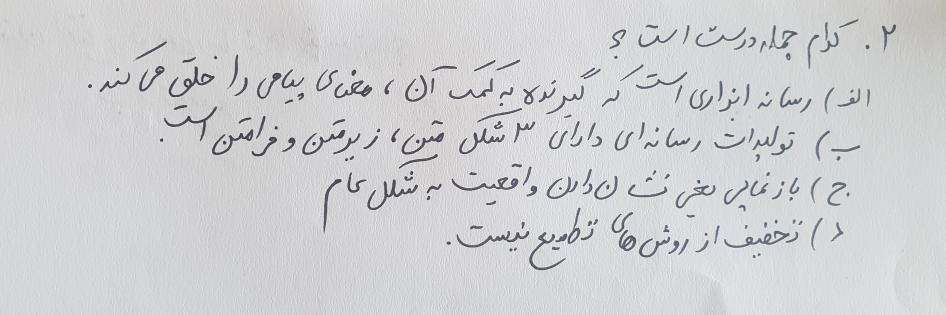 ۲. کدام جمله درست است ؟
الف) رسانه ابزاری است که گیرنده به کمک آن ، معنای پیامی را خلق می کند.
ب) تولیدات رسانه ای دارای ۳ شکل متن، زیرمتن و فرامتن است.
ج) بازنمایی یعنی نشان دادن واقعیت به شکل عام
د) تخفیف از روش های تطمیع نیست.